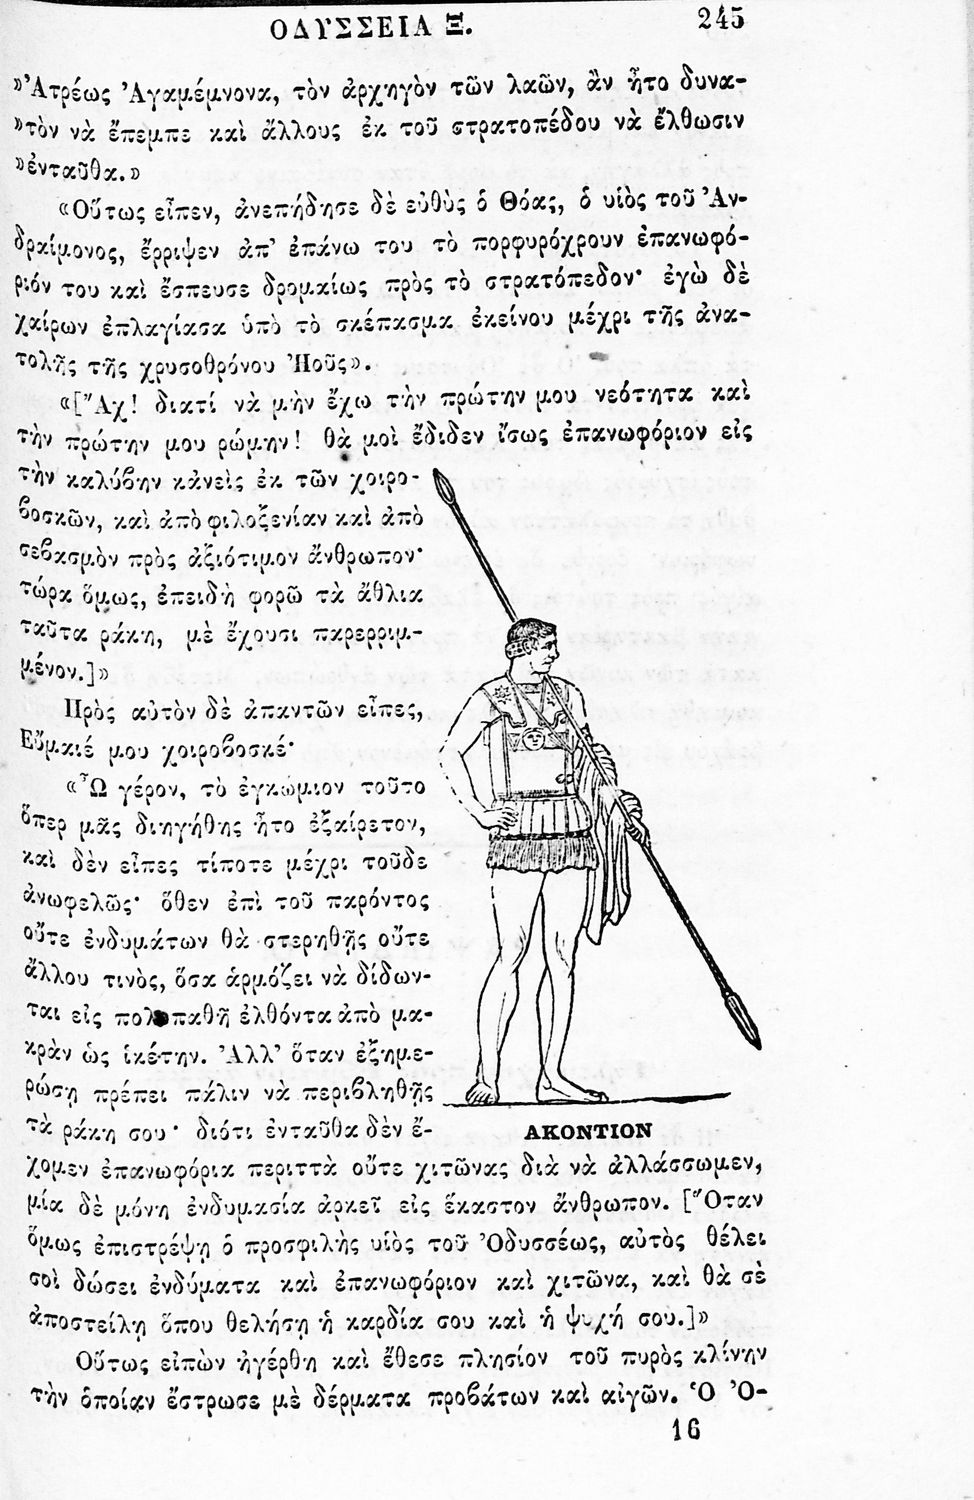 ΟΔΥΣΣΕΙΑ Ξ. 245
»Ἀτρέως Ἀγαμέμνονα, τὸν ἀρχηγὸν τῶν λαῶν, ἂν ἦτο δυνα-
»τὸν νὰ ἔπεμπε καὶ ἄλλους ἐκ τοῦ στρατοπέδου νὰ ἔλθωσιν
»ἐνταῦθα.»
«Οὕτως εἶπεν, ἀνεπήδησε δὲ εὐθὺς ὁ Θόας, ὁ υἱὸς τοῦ Ἀν-
δραίμονος, ἔρριψεν ἀπ' ἐπάνω του τὸ πορφυρόχρουν ἐπανωφό-
ριόν του καὶ ἔσπευσε δρομαίως πρὸς τὸ στρατόπεδον· ἐγὼ δὲ
χαίρων ἐπλαγίασα ὑπὸ τὸ σκέπασμα ἐκείνου μέχρι τῆς ἀνα-
τολῆς τῆς χρυσοθρόνου Ἠοῦς».
«[Ἂχ! διατί νὰ μὴν ἔχω τὴν πρώτην μου νεότητα καὶ
τὴν πρώτην μου ρώμην! θὰ μοὶ ἔδιδεν ἴσως ἐπανωφόριον εἰς
τὴν καλύβην κἀνεὶς ἐκ τῶν χοιρο-
βοσκῶν, καὶ ἀπὸ φιλοξενίαν καὶ ἀπὸ
σεβασμὸν πρὸς ἀξιότιμον ἄνθρωπον·
τώρα ὅμως, ἐπειδὴ φορῶ τὰ ἄθλια
ταῦτα ράκη, μὲ ἔχουσι παρερριμ-
μένον.]»
Πρὸς αὐτὸν δὲ ἀπαντῶν εἶπες,
Εὔμαιέ μου χοιροβοσκέ·
«Ὦ γέρον, τὸ ἐγκώμιον τοῦτο
ὅπερ μᾶς διηγήθης ἦτο ἐξαίρετον,
καὶ δὲν εἶπες τίποτε μέχρι τοῦδε
ἀνωφελῶς· ὅθεν ἐπὶ τοῦ παρόντος
οὔτε ἐνδυμάτων θὰ στερηθῇς οὔτε
ἄλλου τινὸς, ὅσα ἁρμόζει νὰ δίδων-
ται εἰς πολυπαθῆ ἐλθόντα ἀπὸ μα-
κρὰν ὡς ἱκέτην. Ἀλλ' ὅταν ἐξημε-
ρώσῃ πρέπει πάλιν νὰ περιβληθῇς
τὰ ράκη σου· διότι ἐνταῦθα δὲν ἔ-
χομεν ἐπανωφόρια περιττὰ οὔτε χιτῶνας διὰ νὰ ἀλλάσσωμεν,
μία δὲ μόνη ἐνδυμασία ἀρκεῖ εἰς ἕκαστον ἄνθρωπον. [Ὅταν
ὅμως ἐπιστρέψῃ ὁ προσφιλὴς υἱὸς τοῦ Ὀδυσσέως, αὐτὸς θέλει
σοὶ δώσει ἐνδύματα καὶ ἐπανωφόριον καὶ χιτῶνα, καὶ θὰ σὲ
ἀποστείλῃ ὅπου θελήσῃ ἡ καρδία σου καὶ ἡ ψυχή σου.]»
Οὕτως εἰπὼν ἠγέρθη καὶ ἔθεσε πλησίον τοῦ πυρὸς κλίνην
τὴν ὁποίαν ἔστρωσε μὲ δέρματα προβάτων καὶ αἰγῶν. Ὁ Ὀ-
16
ΑΚΟΝΤΙΟΝ